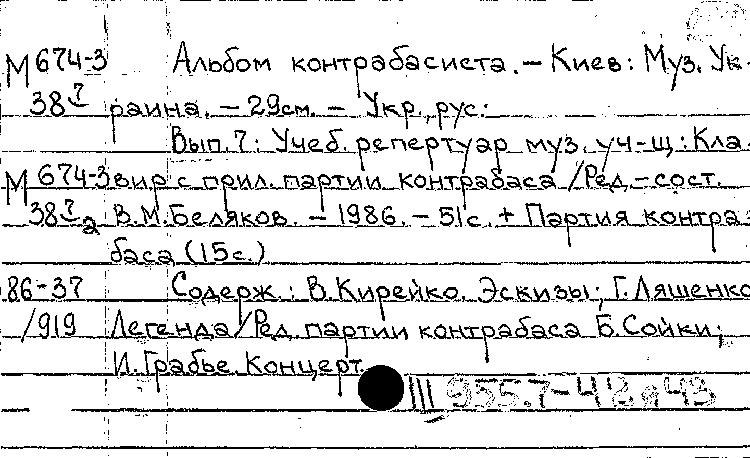 М 674-3 Альбом контрабасиста. – Киев: Муз. Ук-
38 7 раина. – 29см. – Укр., рус.
Вып. 7: Учеб. репертуар муз. уч-щ: Кла-
М 674-3 вир с прил. партии контрабаса / Ред.-сост.
38 7 а В.М.Беляков. – 1986. – 51с. + Партия контра-
баса (15с.)
86-37 Содерж.: В.Кирейко. Эскизы; Г.Ляшенко
/919 Легенда / Ред. партии контрабаса Б.Сойки;
И.Грабье. Концерт.
III 955.7-42 я 43